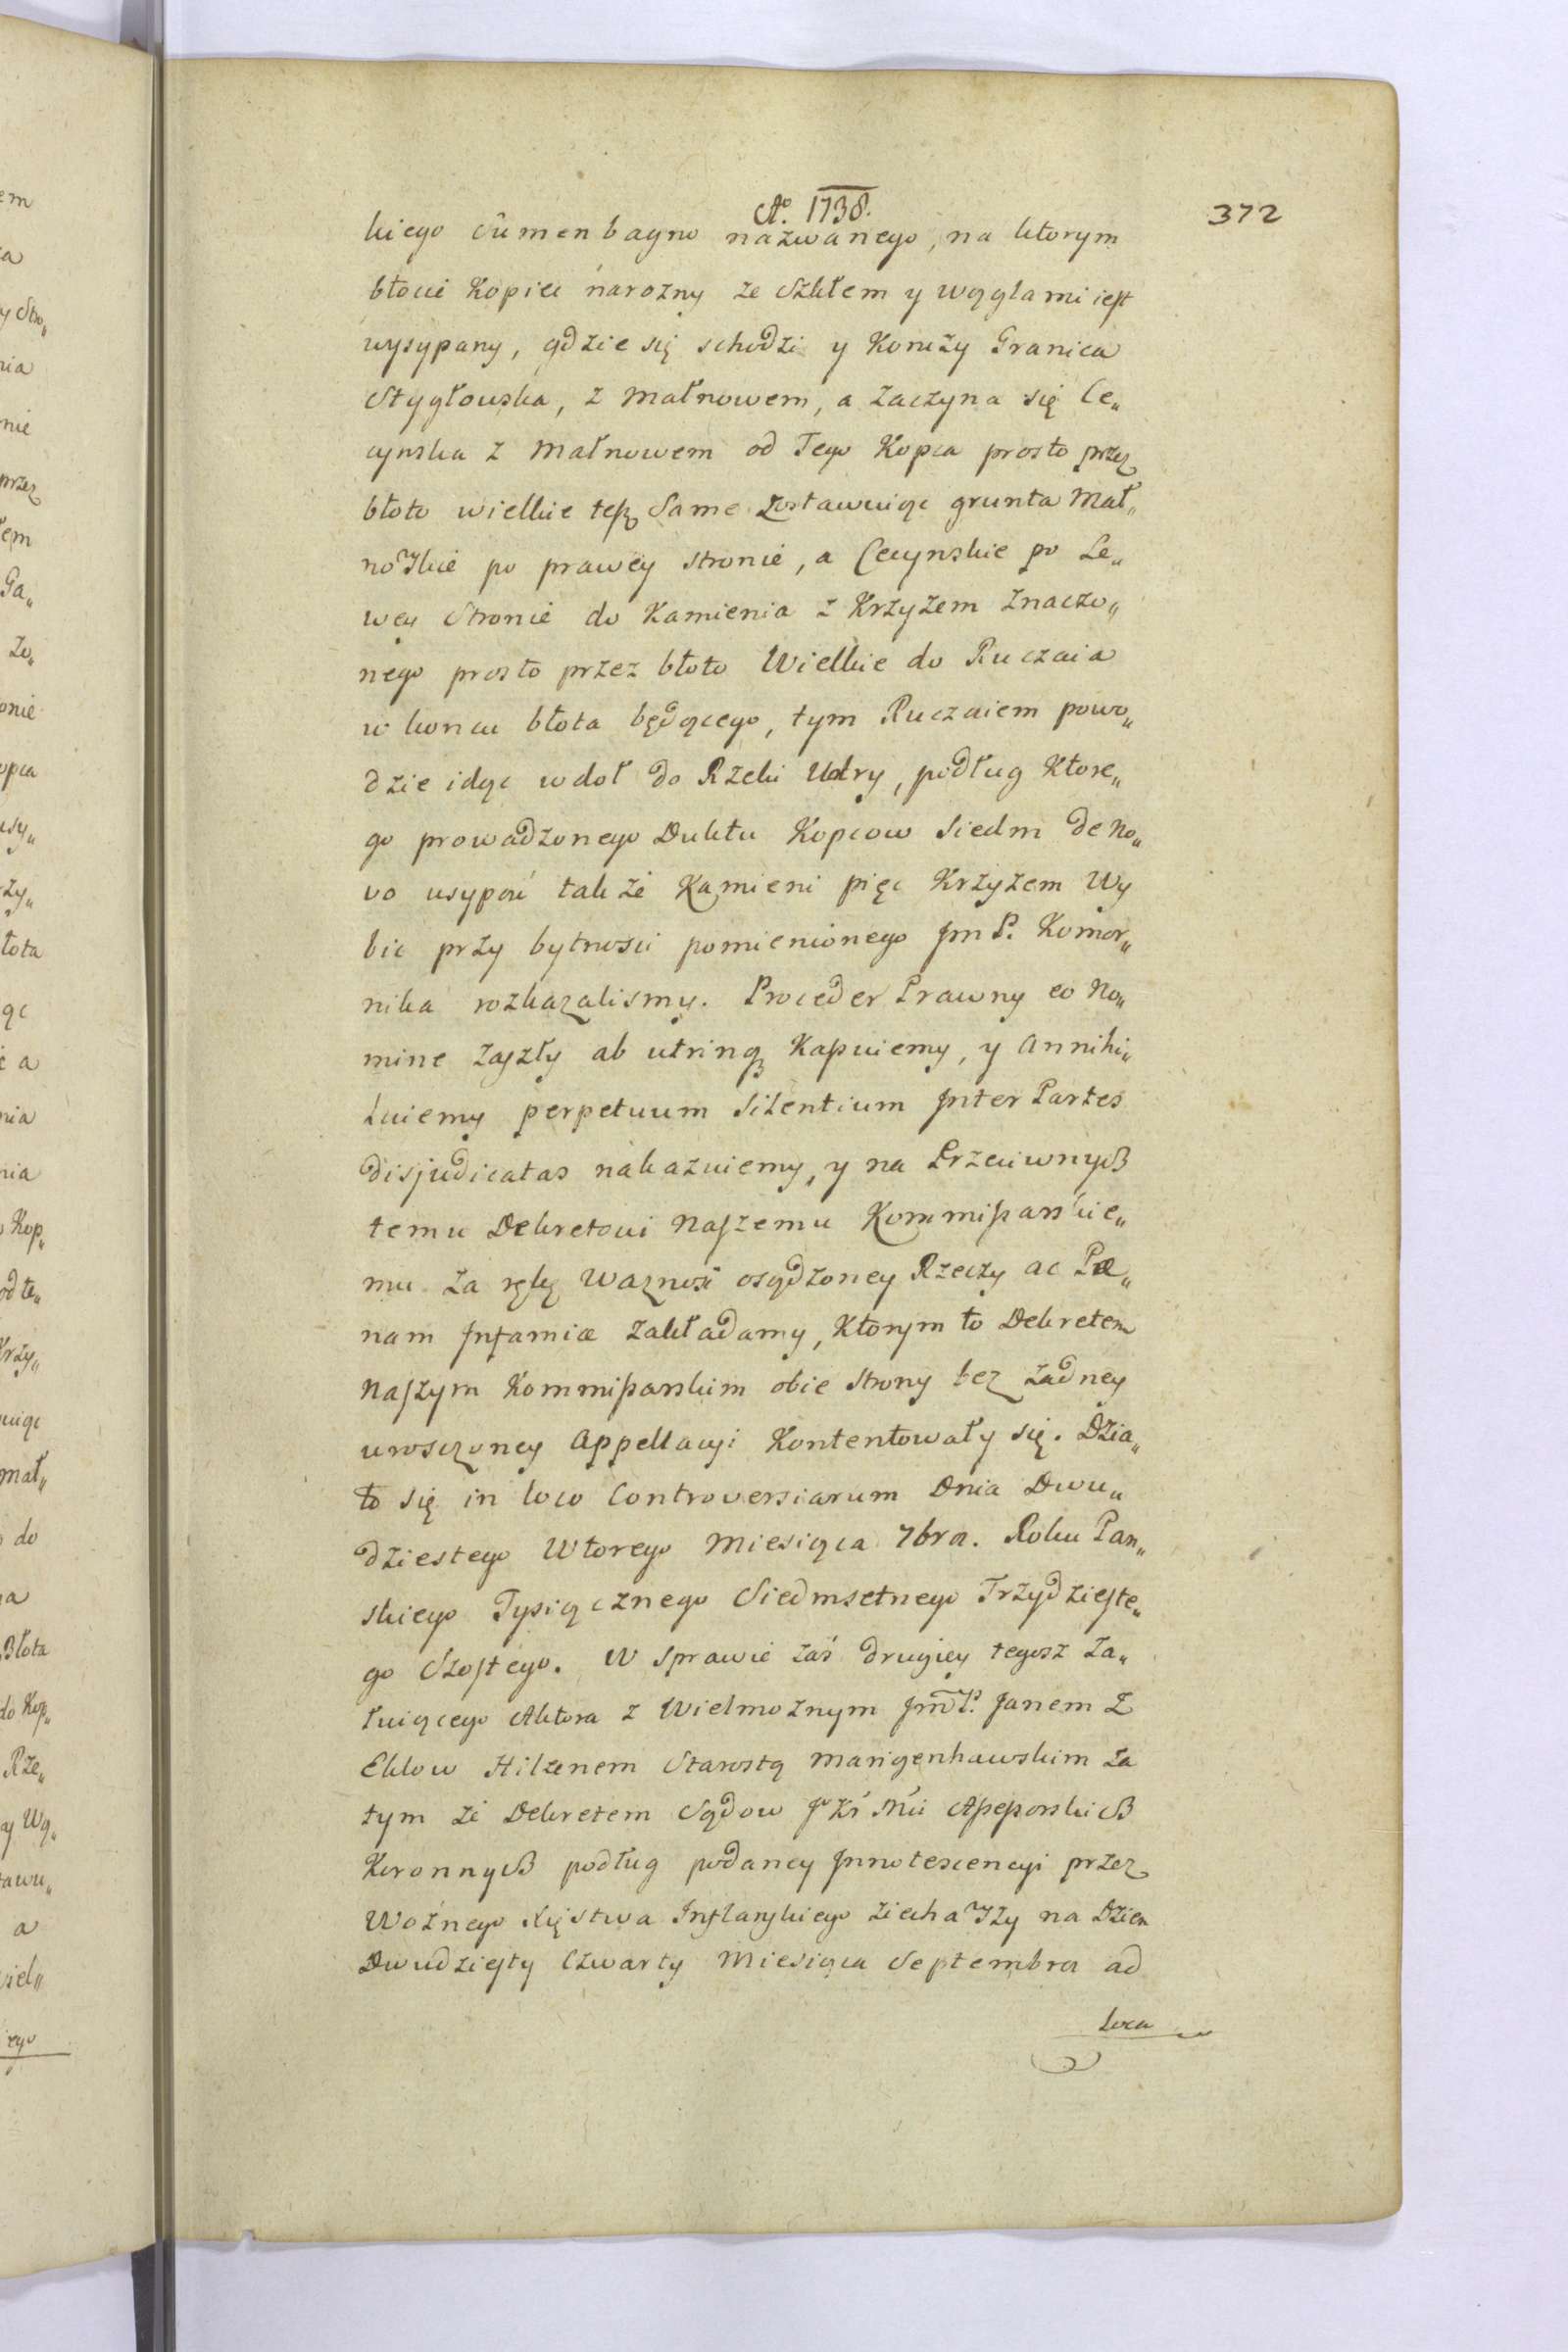 Ao. 1738.
372
kiego Sumenbagno nazwanego, na ktorym
błocie Kopiec narozny ze Szkłem y węglami iest
wysypany, gdzie się schodzi y Konczy Granica
Stygłowska, z Małnowem, a zaczyna się Ce„
cynska z Małnowem od Tego Kopca prosto przez
błoto wielkie tesz Same zostawuiąc grunta Mał„
nowskie po prawey stronie, a Cecynskie po Le„
wey Stronie do Kamienia z Krzyzem znaczo„
nego prosto przez błoto Wielkie do Ruczaia
w koncu błota będącego, tym Ruczaiem powo„
dzie idąc wdoł do Rzeki Udry, podług Ktore„
go prowadzonego Duktu Kopcow Siedm de No„
vo usypać takze Kamieni pięc Krzyzem Wy
bic przy bytnosci pomienionego Jm P. Komor„
nika rozkazalismy. Proceder Prawny eo No„
mine zaszły ab utrinq Kassuiemy, y Annihi„
luiemy perpetuum Silentium Inter Partes
disjudicatas nakazuiemy, y na Przeciwnych
temu Dekretowi Naszemu Kommissarskie„
mu za rękę Waznosc osądzoney Rzeczy ac Pæ„
nam Infamiæ zakładamy, Ktorym to Dekretem
Naszym Kommissarskim obie Strony bez zadney
urosczoney Appellacyi Kontentowały się. Dzia„
ło się in loco Controversiarum Dnia Dwu„
dziestego Wtorego Miesiąca 7bra. Roku Pan„
skiego Tysiącznego Siedmsetnego Trzydzieste„
go Szostego. W sprawie zaś drugiey tegosz Za„
łuiącego Aktora z Wielmoznym Jm P. Janem Z
Eklow Hilzenem Starostą Marigenhawskim za
tym ze Dekretem Sądow Kś Mći Assessorskich
Koronnych podług podaney Innotescencyi przez
Woźnego Xięstwa Inflanskiego ziechawszy na Dzien
Dwudziesty Czwarty Miesiąca Septembra ad
Loca